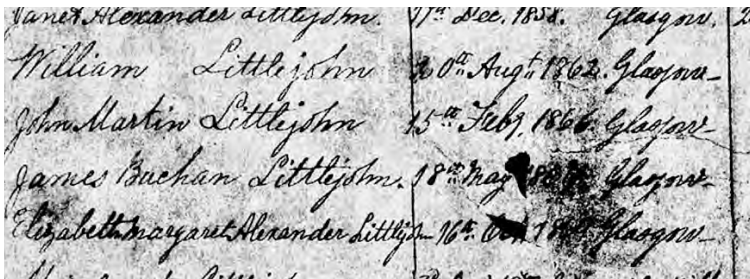 Janet Alexander Littlejohn. 11th Dec. 1858. Glasgow.
William Littlejohn 20th Augt 1862. Glasgow
John Martin Littlejohn 15th Feby. 1866. Glasgow
James Buchan Littlejohn. 18th May Glasgow
Elizabeth Margaret Alexander Littlejohn 16th Glasgow